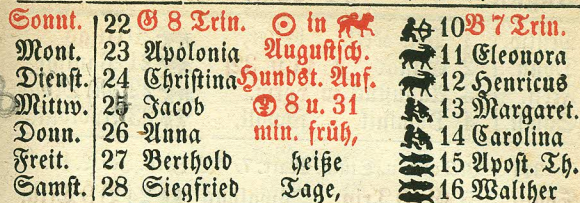 Sonnt. 22 G 8 Trin. ☉ in ♌ 10 B 7 Trin.
Mont. 23 Apolonia Augustsch. 11 Eleonora
Dienst. 24 Christina Hundst. Anf. 12 Henricus
Mittw. 25 Jacob 8 u. 31 13 Margaret.
Donn. 26 Anna min. früh, 14 Carolina
Freit. 27 Berthold heiße 15 Apost. Th.
Samst. 28 Siegfried Tage, 16 Walther